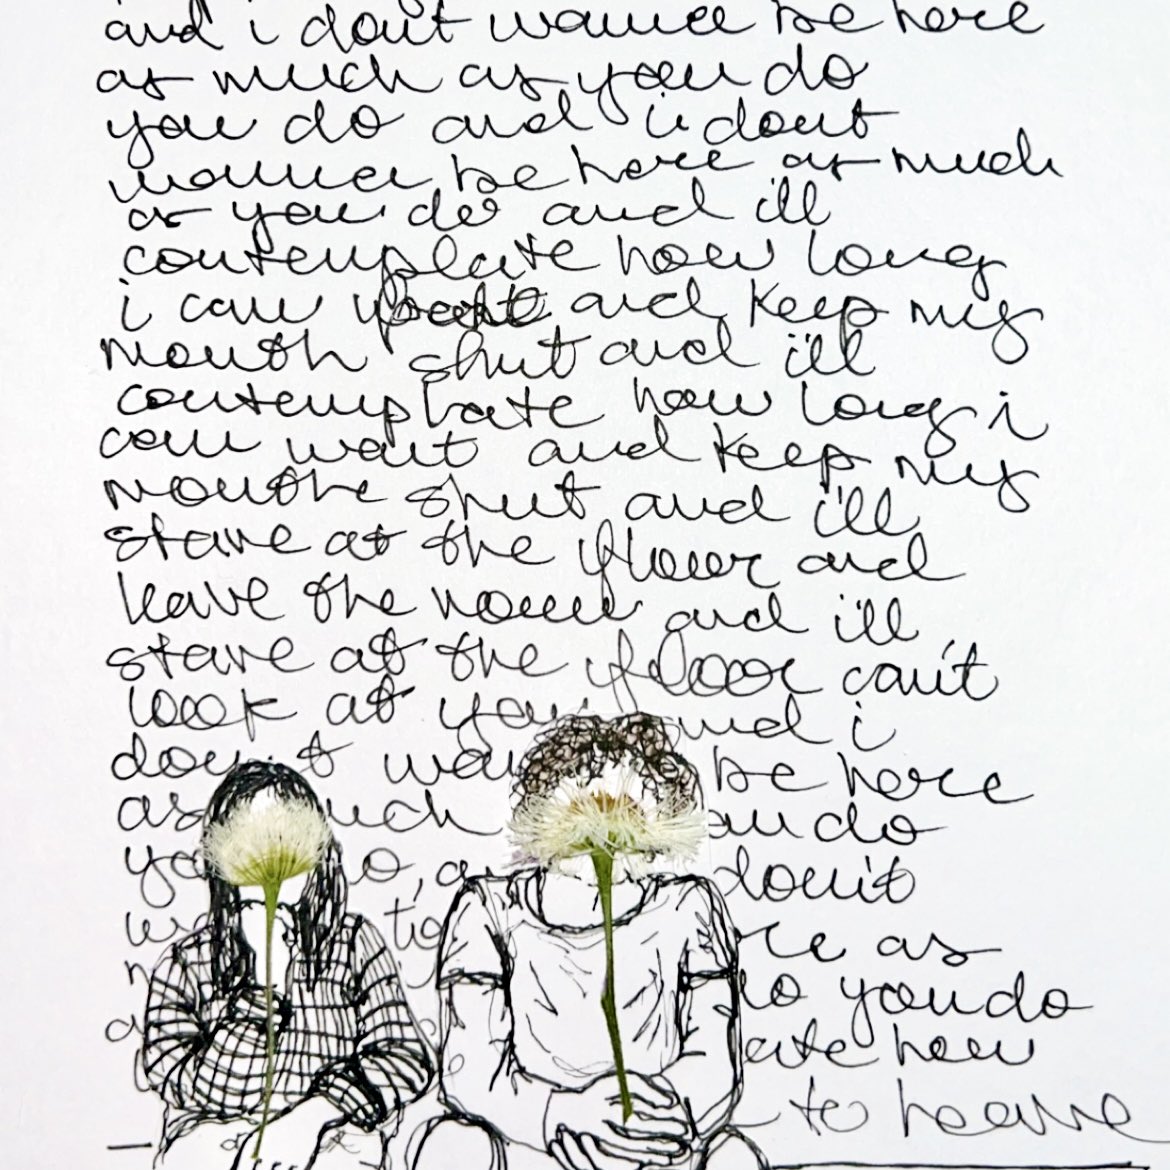 and i don't wanna be here
as much as you do
you do and i dont
wanna be here as much
as you do and ill
contemplate how long
i can and keep my
mouth shut and ill
contemplate how long i
can wait and keep my
mouth shut and i'll
stare at the floor and
leave the room and i'll
stare at the floor can't
look at you and i
don't be here
as do
don't
as
you do
how
to leave